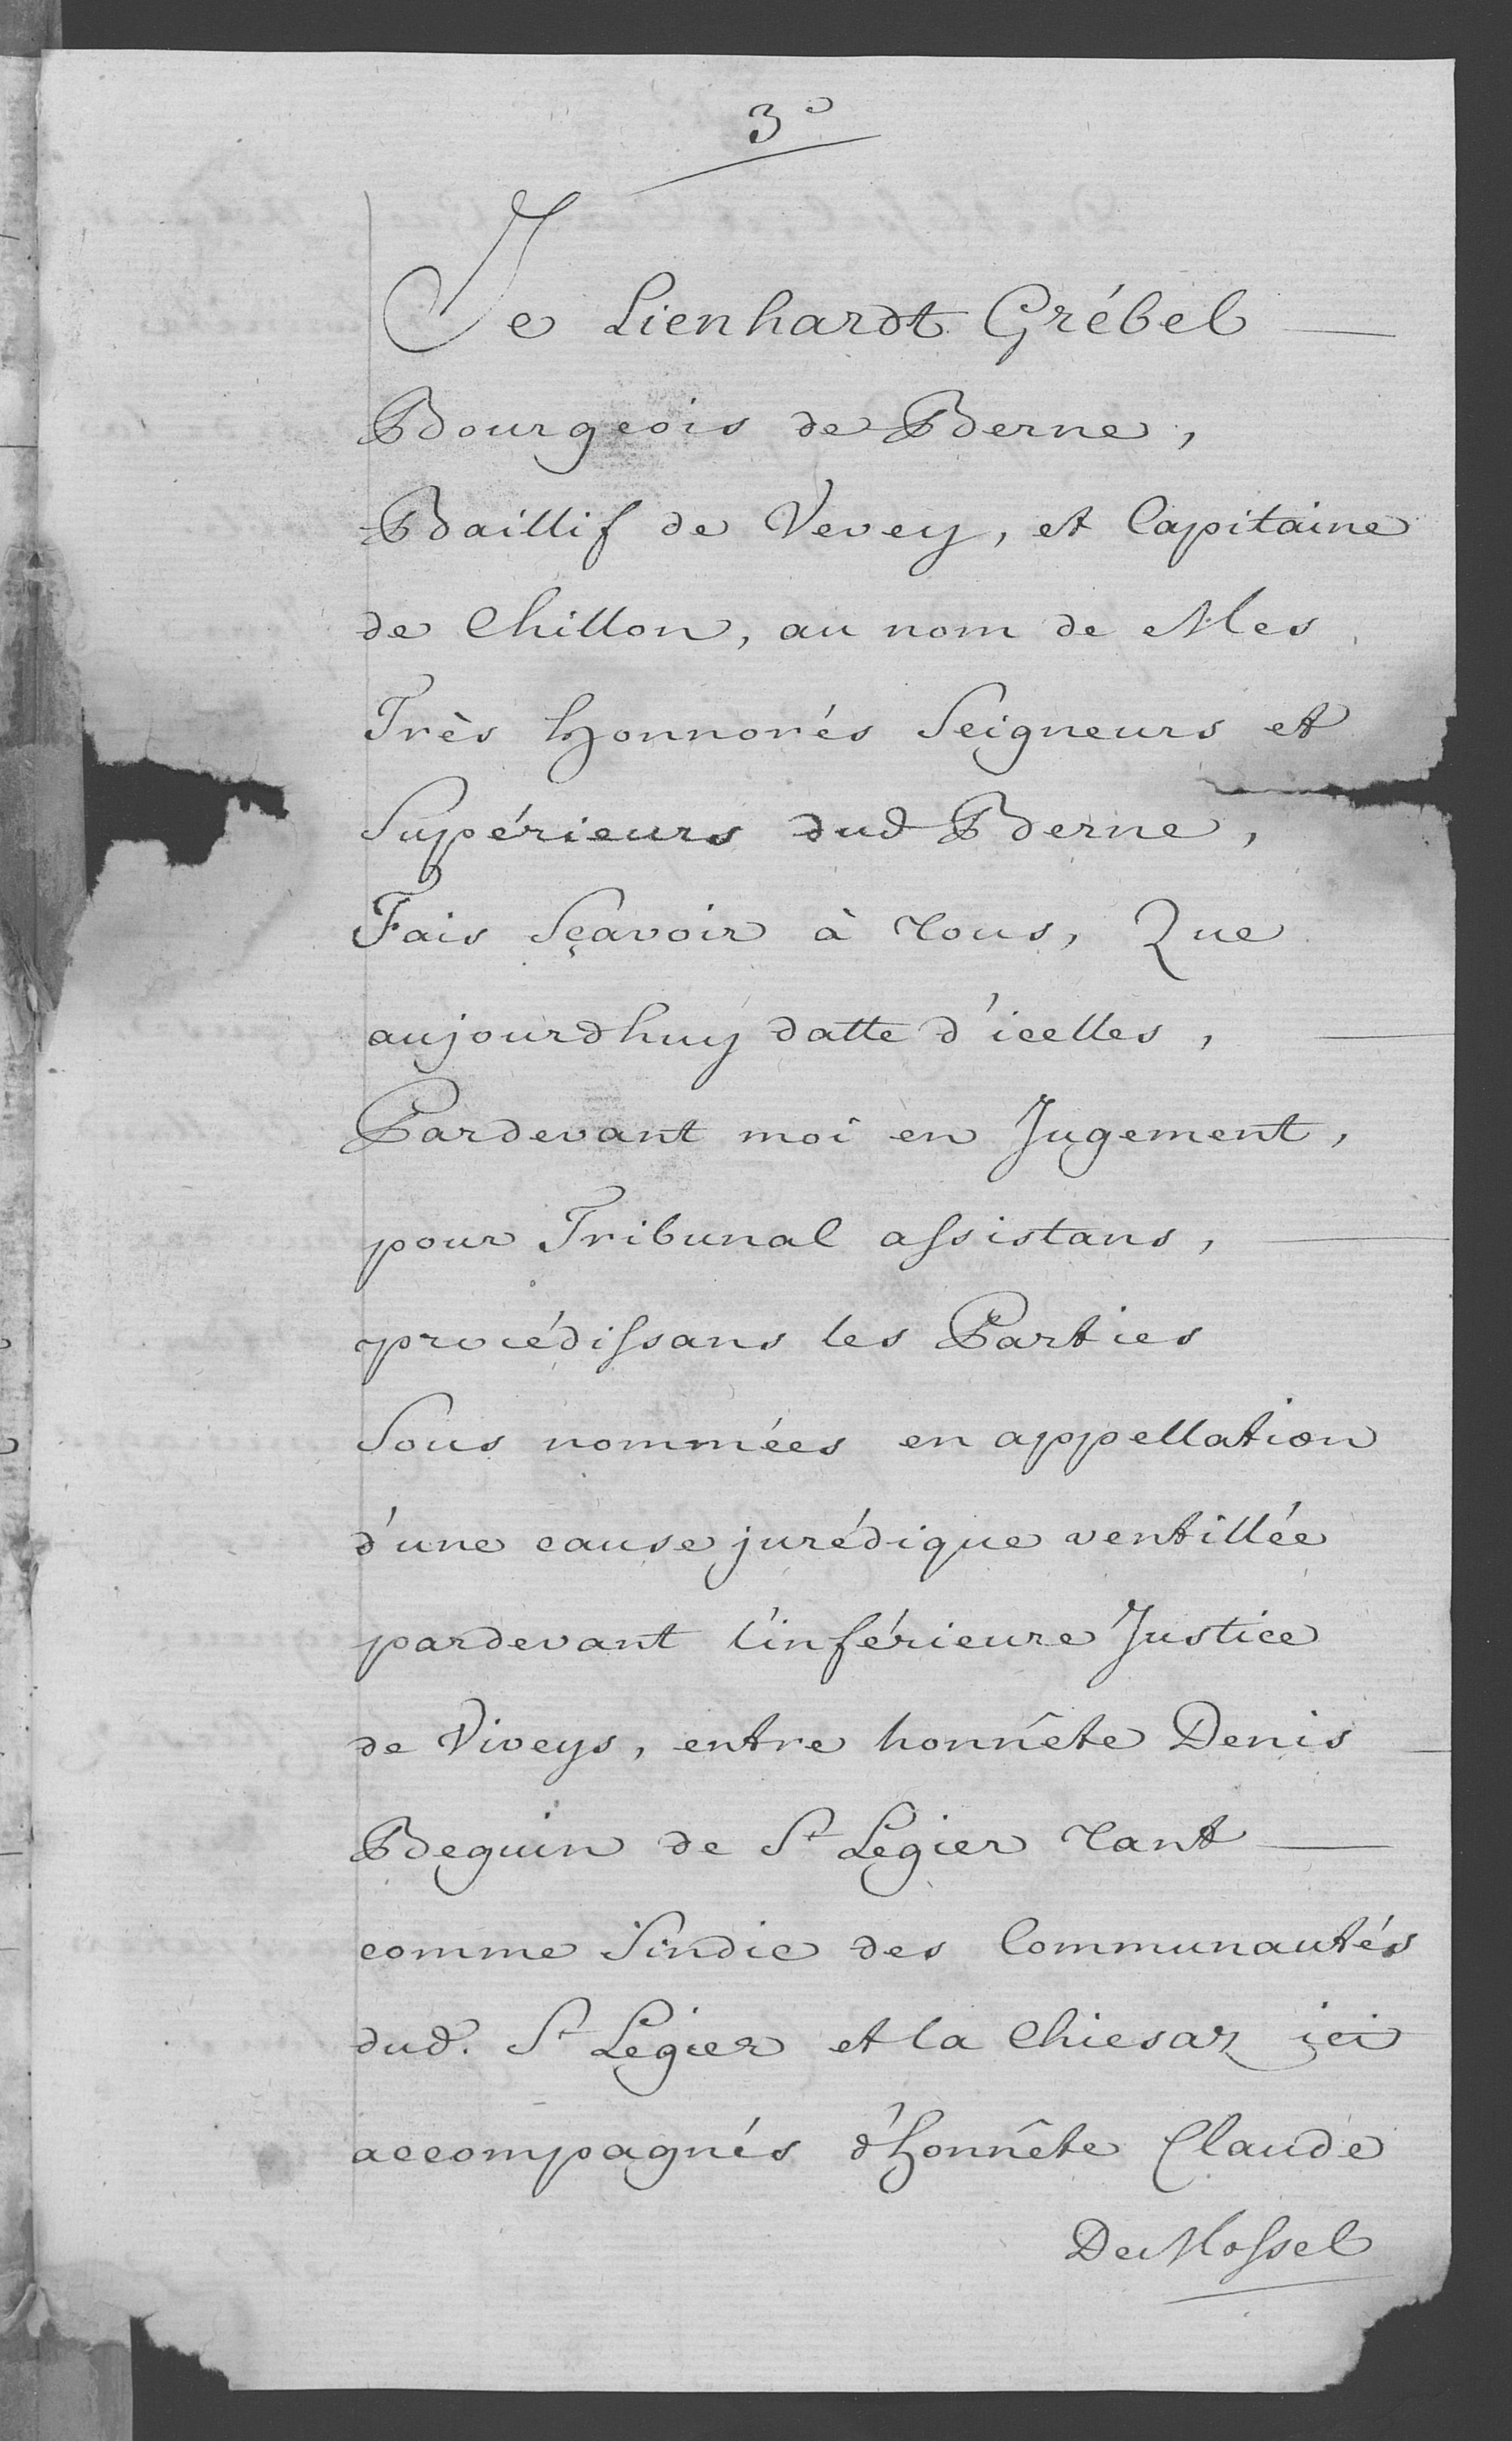 3°
Je Lienhardt Grébel
Bourgeois de Berne,
Baillif de Vevey, et Capitaine
de Chillon, au nom de Mes
Très Honnorés Seigneurs et
Supérieurs dud Berne,
Fais Sçavoir à tous, Que
aujourdhuy datte d'icelles,
Pardevant moi en Jugement,
pour Tribunal assistans,
procédissans les Parties
Sous nommées en appellation
d'une cause jurédique ventillée
pardevant l'inférieure Justice
de Viveys, entre honnête Denis
Beguin de St Légier tant
comme Sindic des Communautés
dud. St Légier et la Chiesaz ici
accompagnés d'honnête Claude
De Mossel